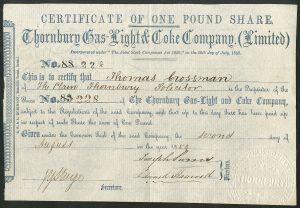 CERTIFICATE OF ONE POUND SHARE.
Thornbury Gas-Light & Coke Company, (Limited)
Incorporated under "The Joint Stock Companies Act 1856," on the 26th day of July, 1856.
No. 88. 228
This is to certify that Thomas Crossman
of The Plain Thornbury Solicitor is the Proprietor of the
Share No. 88. 228 of The Thornbury Gas-Light and Coke Company,
subject to the Regulations of the said Company, and that up to this day there has been paid up
in respect of such Share the sum of One Pound.
Given under the Common Seal of the said Company, the second day of
August in the year 18
Directors.
Secretary.